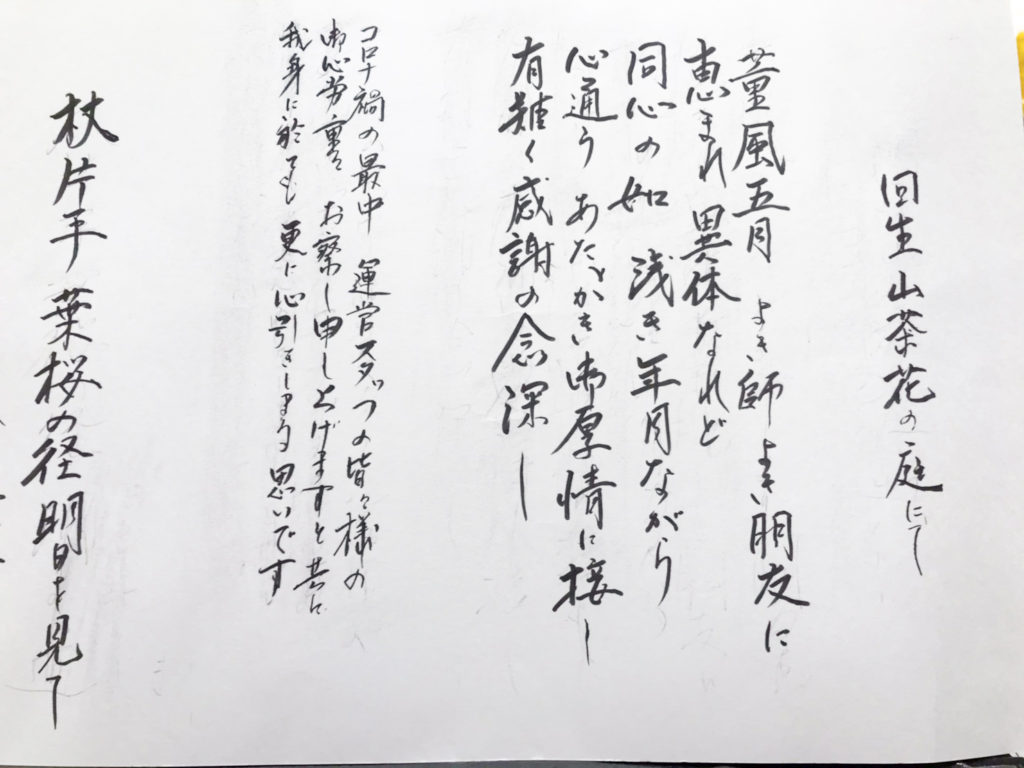 回生 山茶花の庭にて
薫風五月 よき師よき朋友に
恵まれ 異体なれど
同心の如 浅き年月ながら
心通う あたゝかき御厚情に接し
有難く感謝の念深し
コロナ禍の最中 運営スタッフの皆々様の
御心労重々 お察し申し上げますと共に
我身に於ても 更に心引きしまる思いです
杖片手 葉桜の径明日を見て